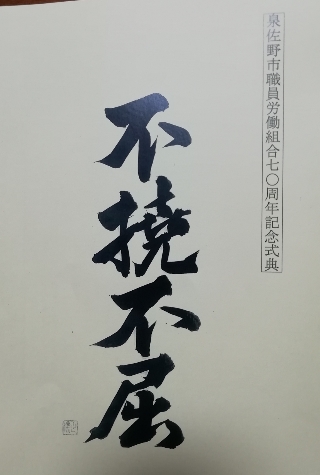 泉佐野市職員労働組合七〇周年記念式典
不撓不屈